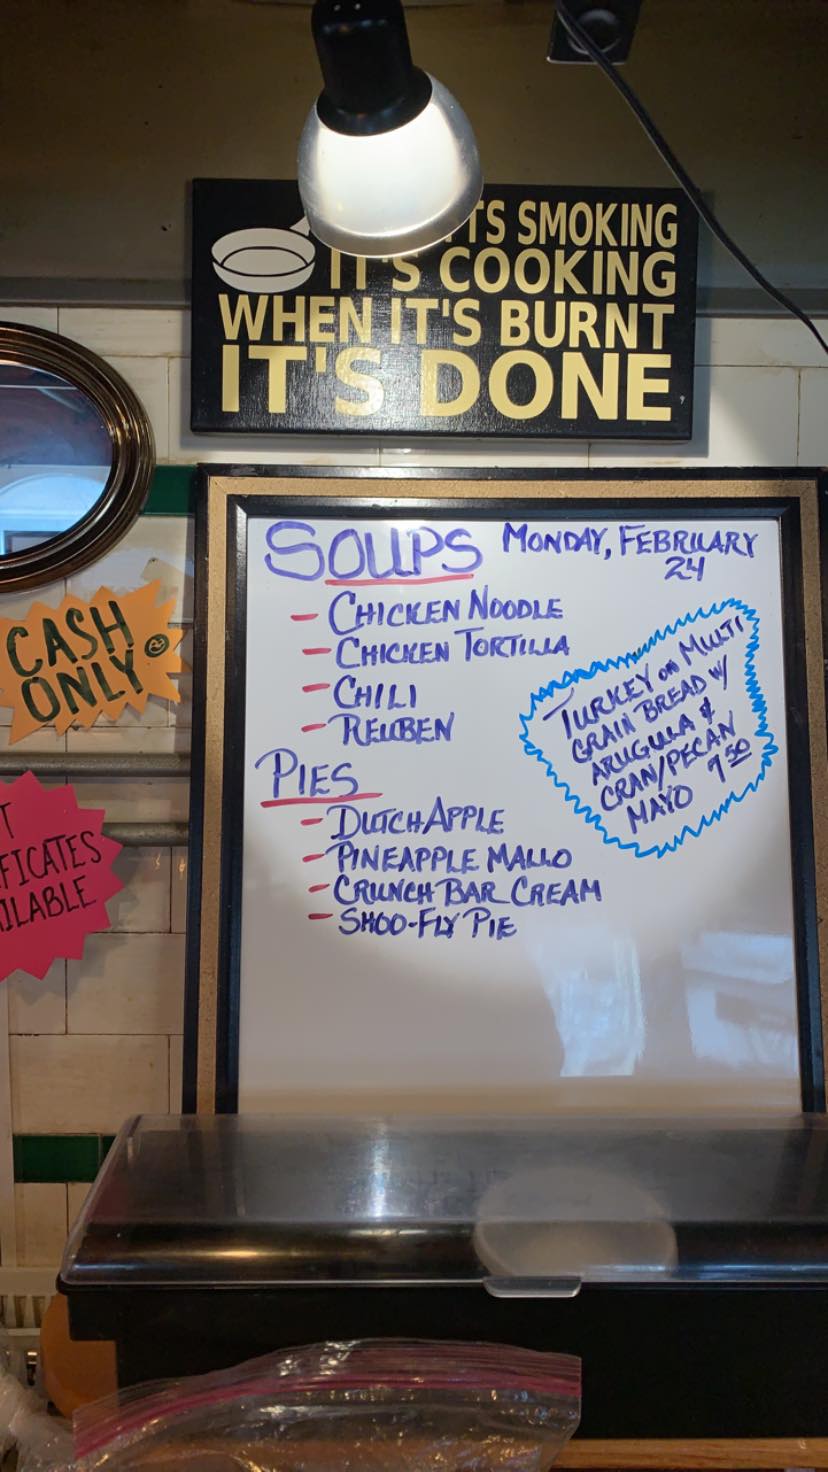 TS SMOKING
IT'S COOKING
WHEN IT'S BURNT
IT'S DONE
SOUPS
MONDAY, FEBRUARY
24
- CHICKEN NOODLE
- CHICKEN TORTILLA
- CHILI
- REUBEN
PIES
- DUTCH APPLE
- PINEAPPLE MALLO
- CRUNCH BAR CREAM
- SHOO-FLY PIE
TURKEY on MULTI
GRAIN BREAD w/
ARUGULA &
CRAN/PECAN
MAYO 9.50
CASH
ONLY
T
FICATES
ILABLE